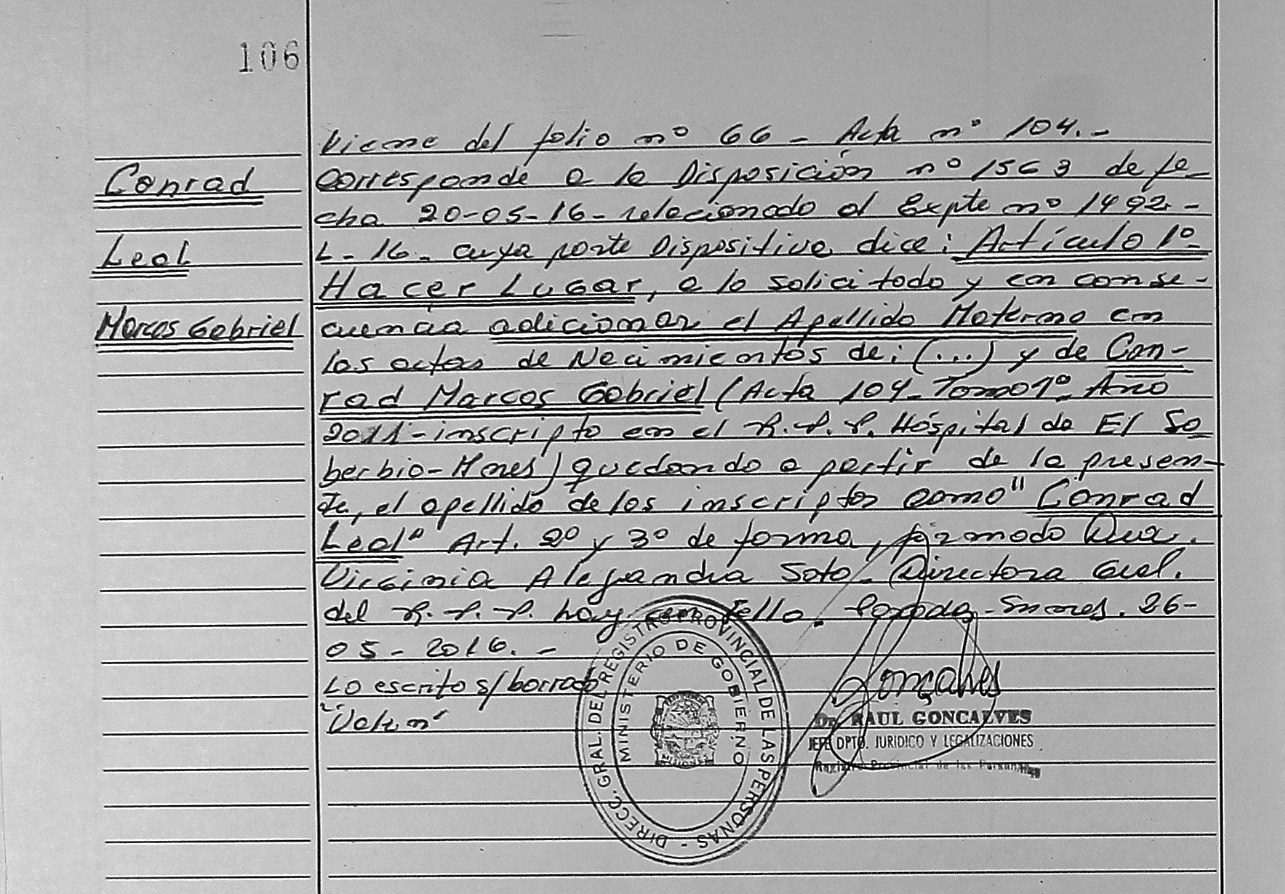 106
Conrad
Leal
Marcos Gabriel
Viene del folio nº 66 - Acta nº 104.-
Corresponde a la Disposición nº 1563 de fe-
cha 20-05-16- relacionado al Expte nº 1492-
L-16- cuya parte Dispositiva dice: Artículo 1º
Hacer Lugar, a lo solicitado y en conse-
cuencia adicionar el Apellido Materno en
las actas de Nacimientos de: (...) y de Con-
rad Marcos Gabriel (Acta 104-Tomo1º-Año
2011-inscripto en el R.P.P. Hospital de El So-
berbio-Mnes) quedando a partir de la presen-
te, el apellido de los inscriptos como" Conrad
Leal" Art. 2º y 3º de forma, firmado Dra.
Virginia Alejandra Soto- Directora Gral.
del R.P.P. hay un sello. Posadas-Mnes. 26-
05-2016.-
Lo escrito s/borrado
"Vale"
Gonçalves
Dr. RAUL GONCALVES
JEFE DPTO. JURIDICO Y LEGALIZACIONES
Registro Provincial de las Personas
DIRECC. GRAL. DEL REGISTRO PROVINCIAL DE LAS PERSONAS
MINISTERIO DE GOBIERNO
MISIONES